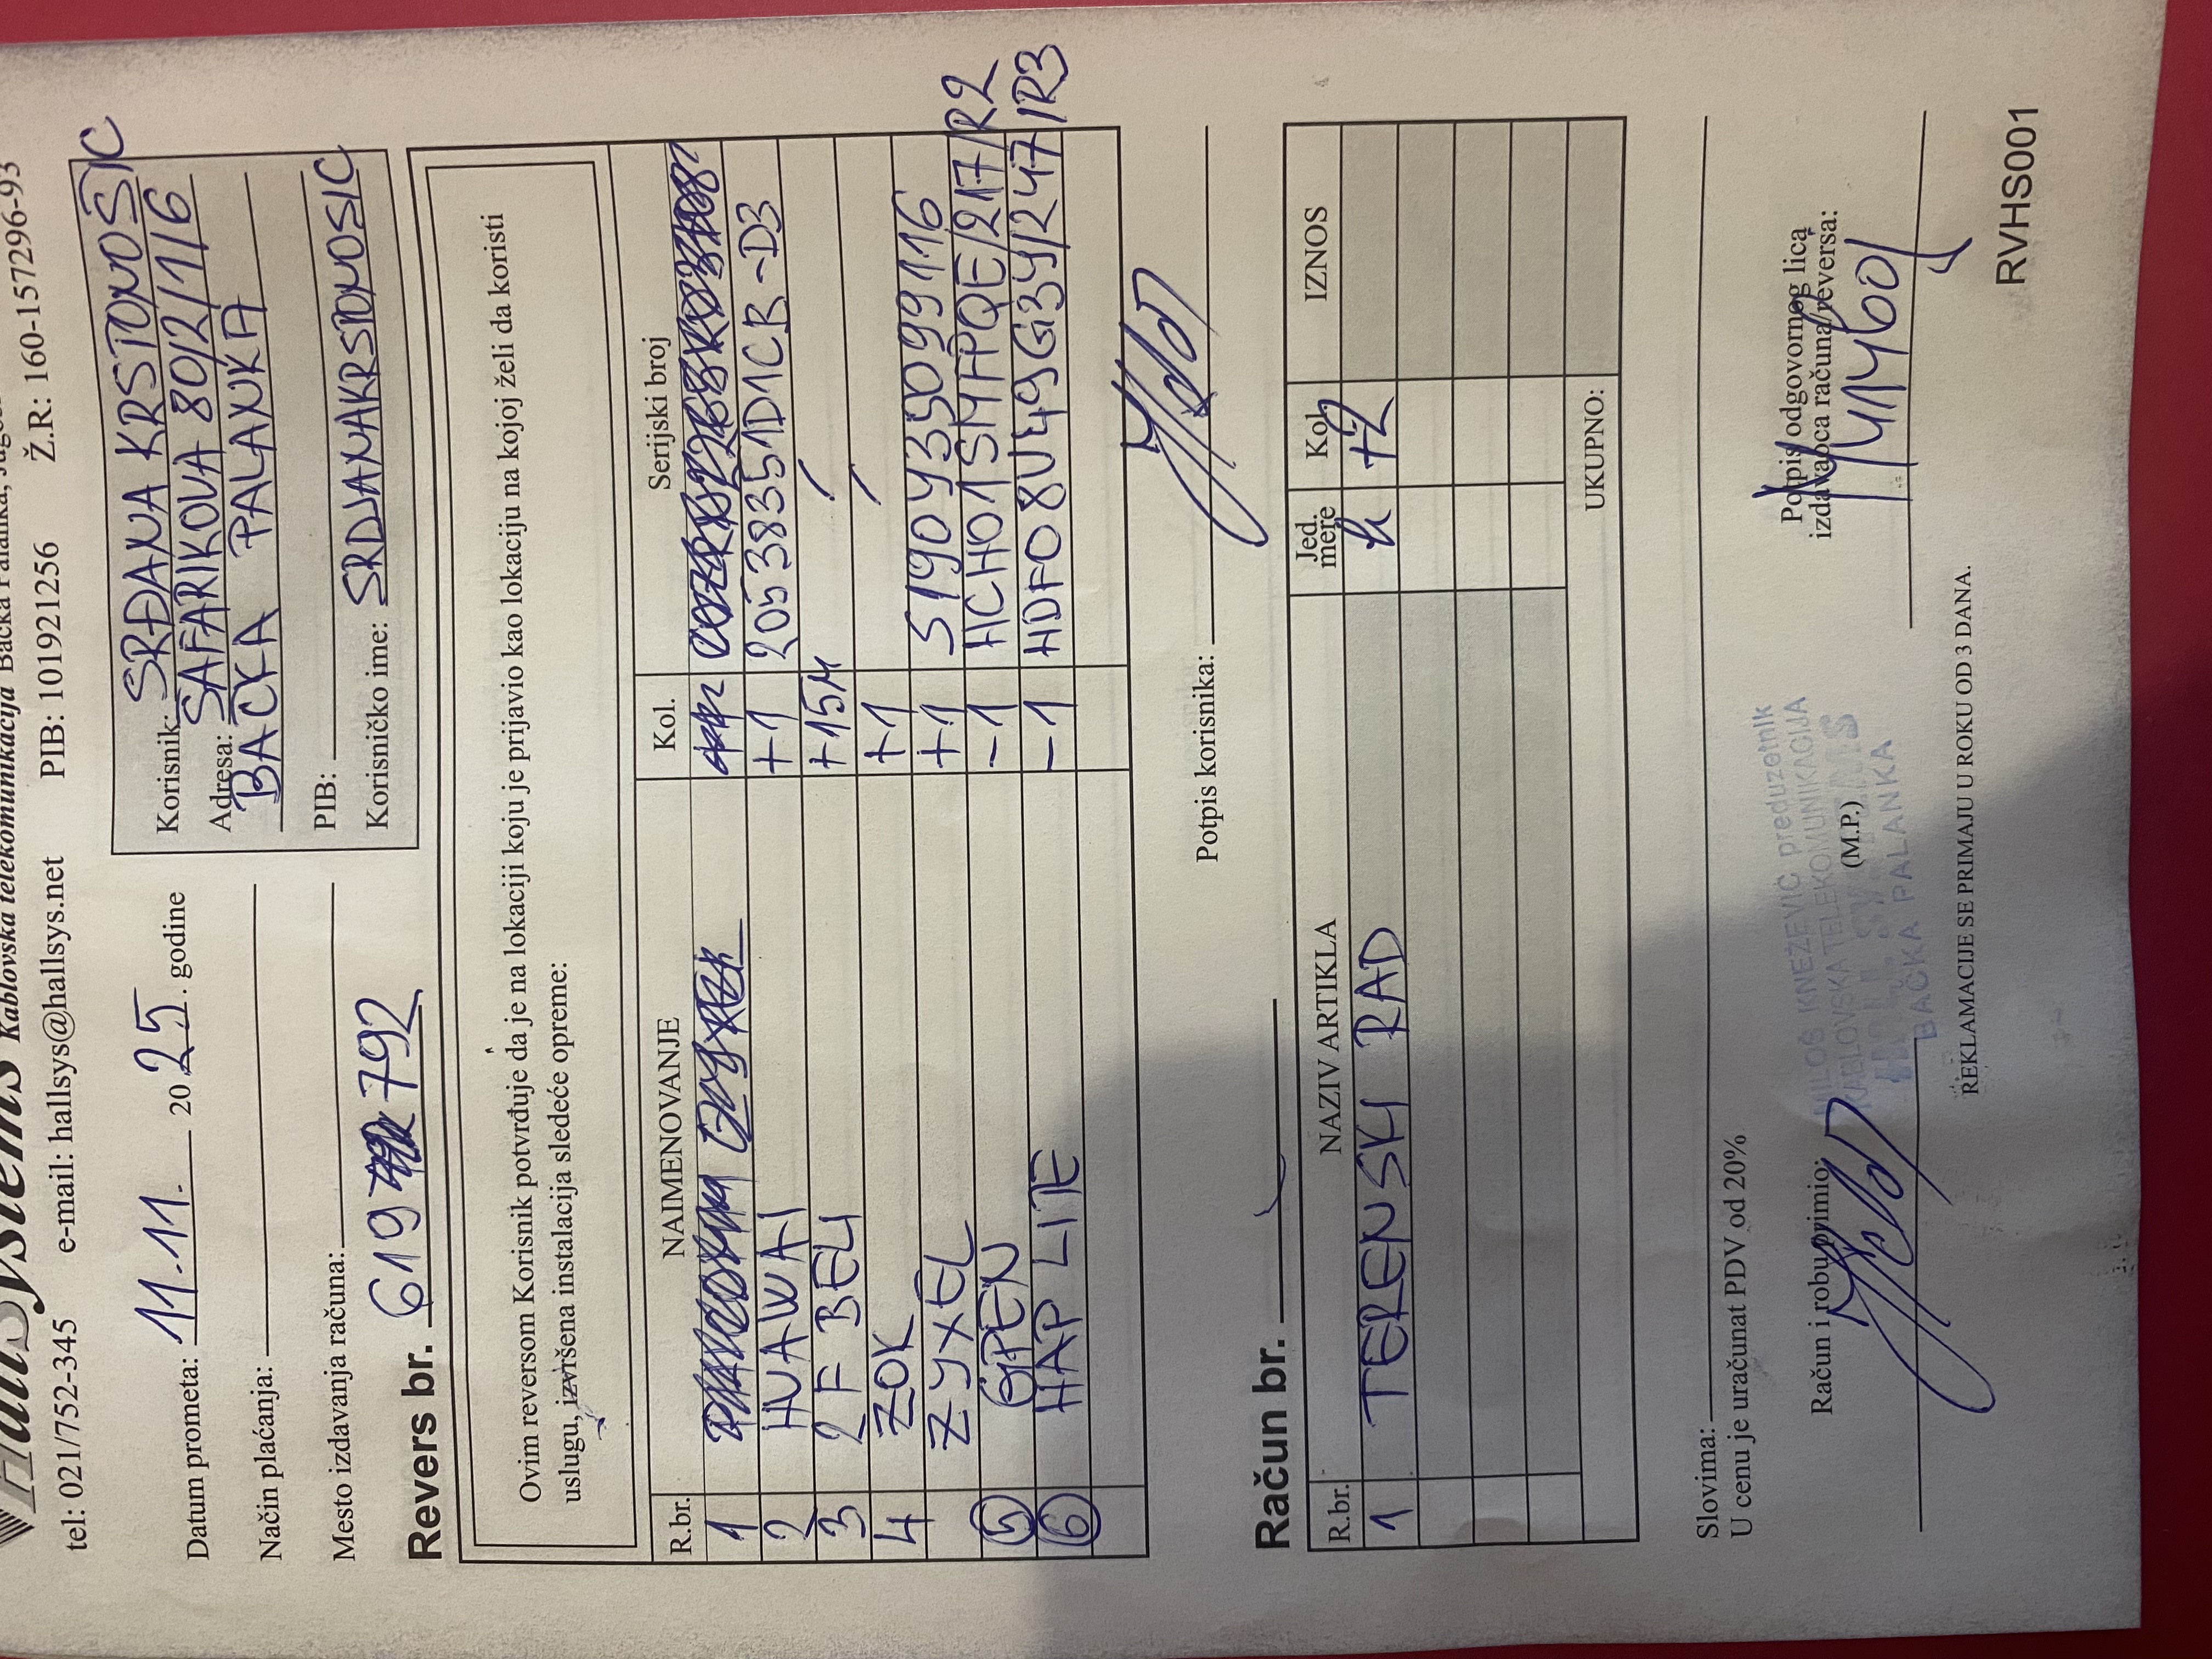 HallSystems Kablovska telekomunikacija Bačka Palanka,
tel: 021/752-345 e-mail: hallsys@hallsys.net PIB: 101921256 Ž.R: 160-157296-93
Datum prometa: 11.11. 2025. godine
Način plaćanja:
Mesto izdavanja računa:
Korisnik: SRĐANA KRSTONOŠIC
Adresa: ŠAFARIKOVA 80/2/1/6
BACKA PALANKA
PIB:
Korisničko ime: SRDJANAKRSTONOSIC
Revers br. 619 792
Ovim reversom Korisnik potvrđuje da je na lokaciji koju je prijavio kao lokaciju na kojoj želi da koristi
uslugu, izvršena instalacija sledeće opreme:
R.br. NAIMENOVANJE Kol. Serijski broj
1
2 HUAWAI +1 20538351D1CR-D3
3 2F BELI +15M /
4 ZOK +1 /
ZYXEL +1 S190Y35099116
5 GPEN -1 HCH01SMFPQE/217/R2
6 HAP LITE -1 HDF08V49G3Y/247/R3
Potpis korisnika:
Račun br.
R.br. NAZIV ARTIKLA Jed. mere Kol. IZNOS
1 TERENSKI RAD h +2
UKUPNO:
Slovima:
U cenu je uračunat PDV od 20%
Račun i robu primio:
MILOŠ KNEŽEVIĆ preduzetnik
KABLOVSKA TELEKOMUNIKACIJA
BAČKA PALANKA
(M.P.)
Potpis odgovornog lica
izdavaoca računa/reversa:
REKLAMACIJE SE PRIMAJU U ROKU OD 3 DANA.
RVHS001